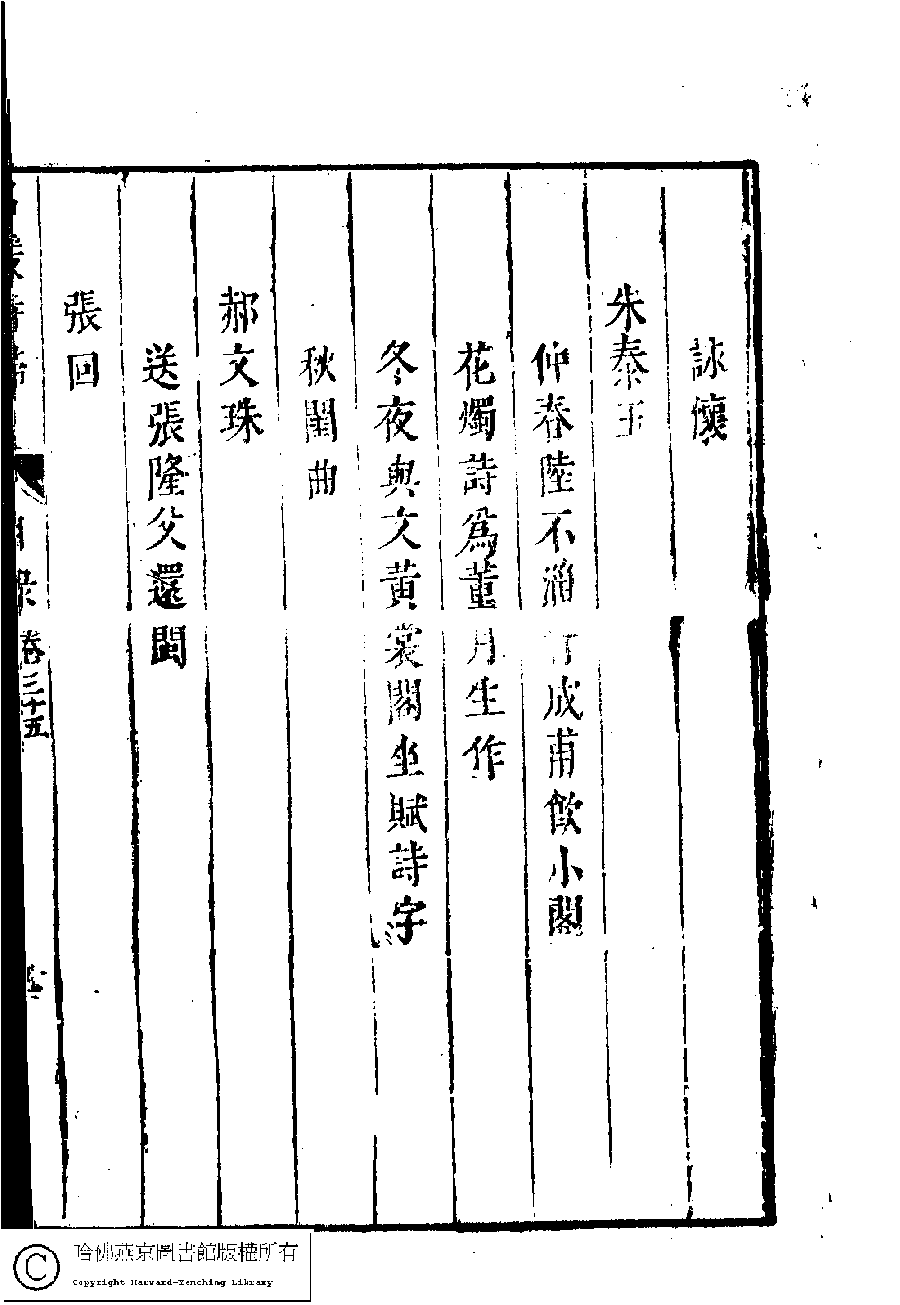 詠懷
朱泰玉
仲春陸不淄 成甫飲小閣
花燭詩爲董 生作
冬夜與文黃裳閣坐賦詩字
秋閨曲
郝文珠
送張隆父還閩
張回
目錄卷三十五
哈佛燕京圖書館版權所有
Copyright Harvard-Yenching Library